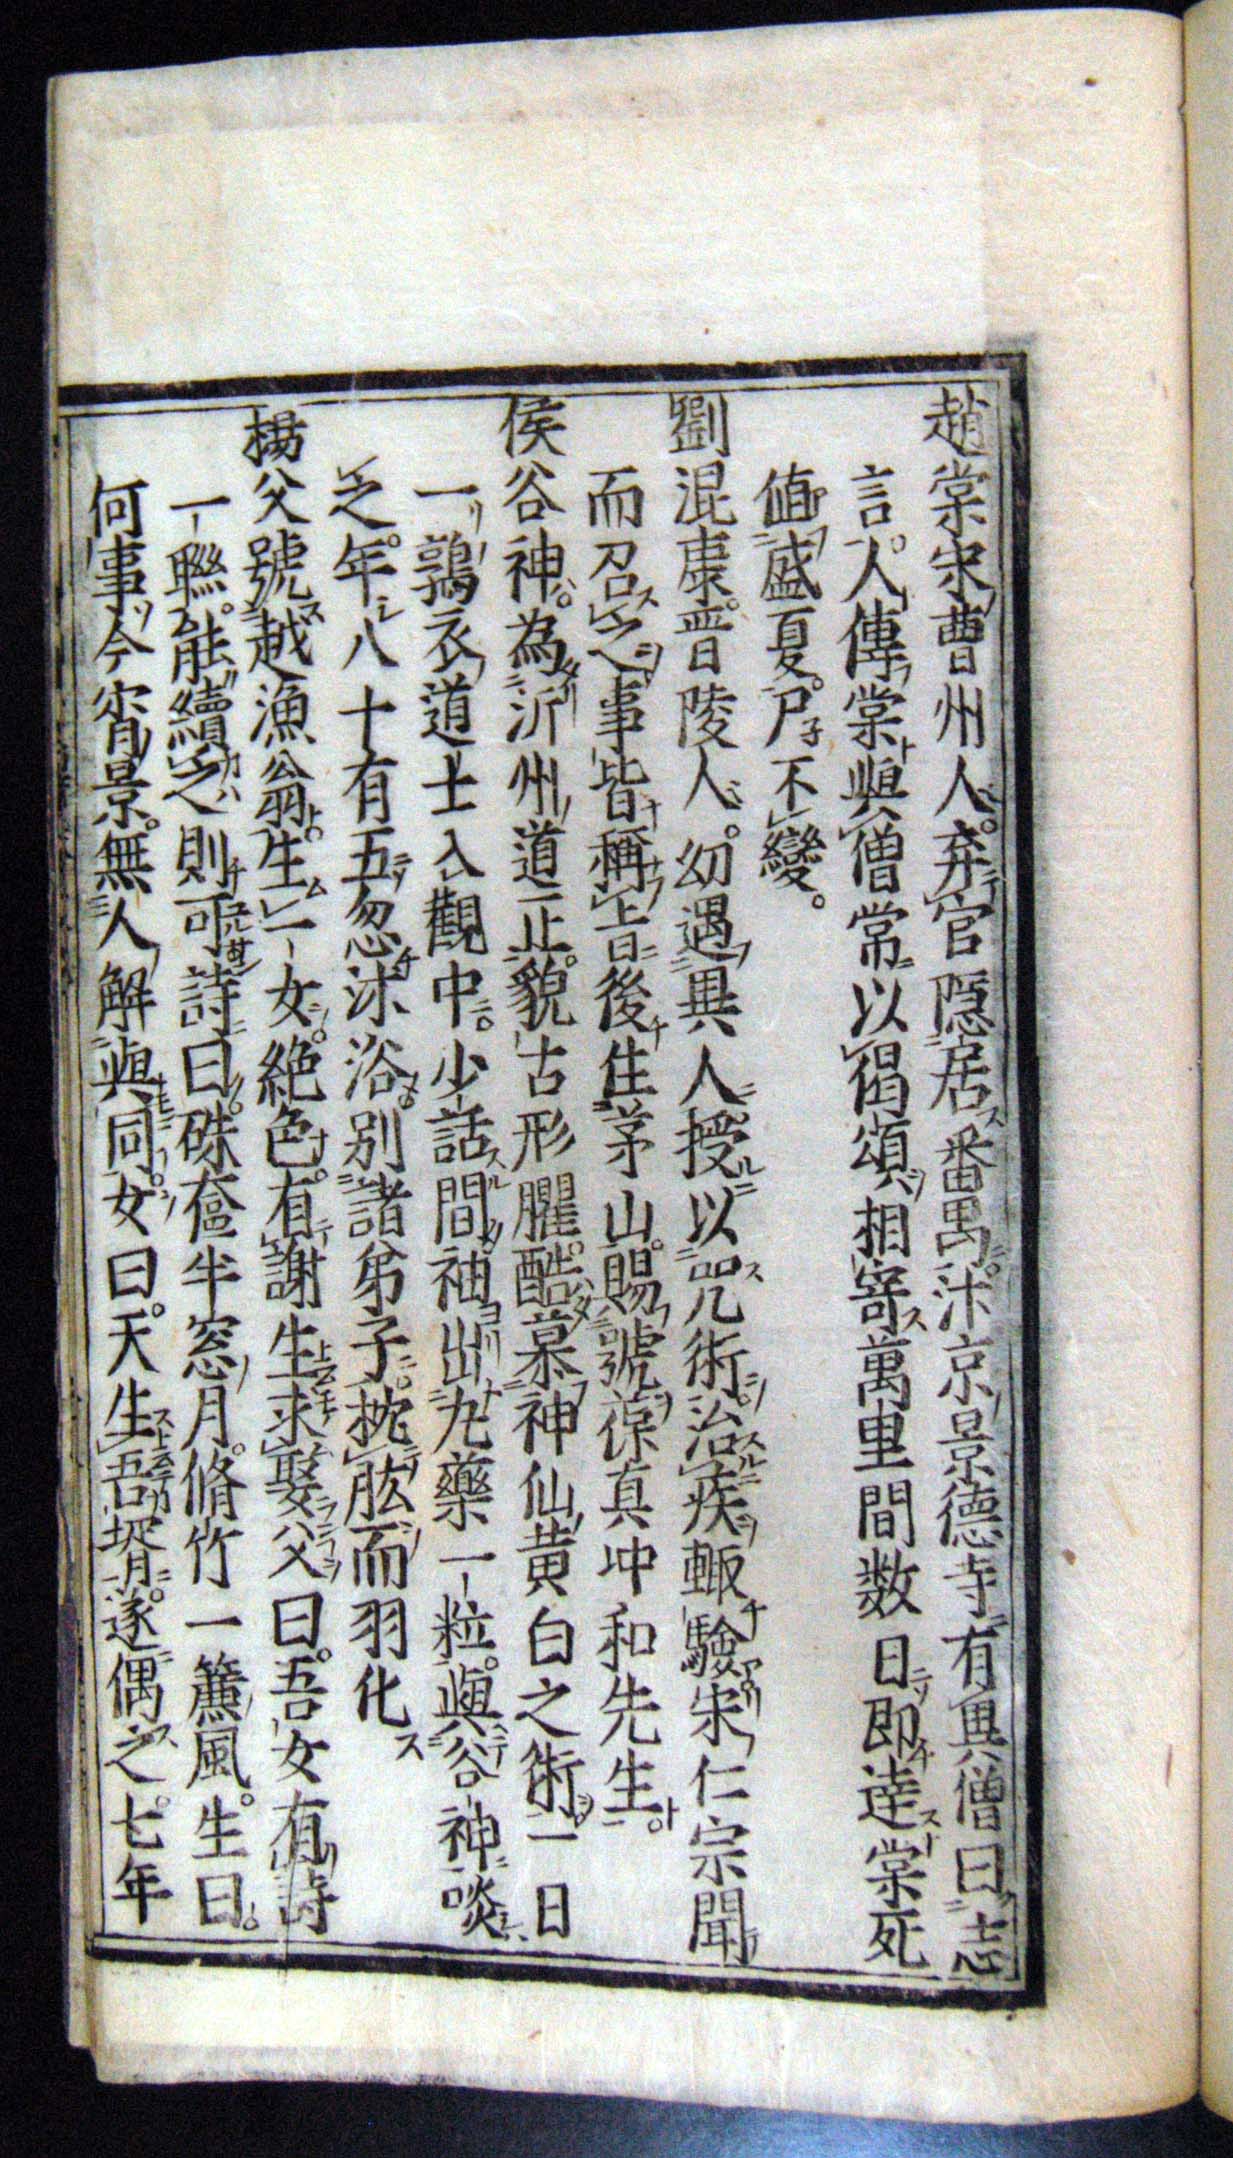 趙棠宋曹州人。弃官隠居番禺。汴京景德寺有異僧曰志
言。人傳棠與僧常以偈頌相寄萬里間数日即達棠死
値盛夏。尸不變。
劉混康。晋陵人。幼遇異人授以咒術。治疾輙驗宋仁宗聞
而召之。事皆稱旨後住茅山。賜號葆真冲和先生。
侯谷神。為沂州道正。貌古形臞。酷慕神仙黄白之術。一日
一鶉衣道士入觀中。少話間袖出丸藥一粒。與谷神啖
之。年八十有五忽沐浴。別諸弟子。枕肱而羽化
楊父號越漁翁。生一女。絶色。有謝生求娶父曰。吾女有詩
一聯。能續之則可詩曰。硃奩半窓月。脩竹一簾風。生曰。
何事今宵景。無人解與同。女曰。天生吾壻。遂偶之。七年